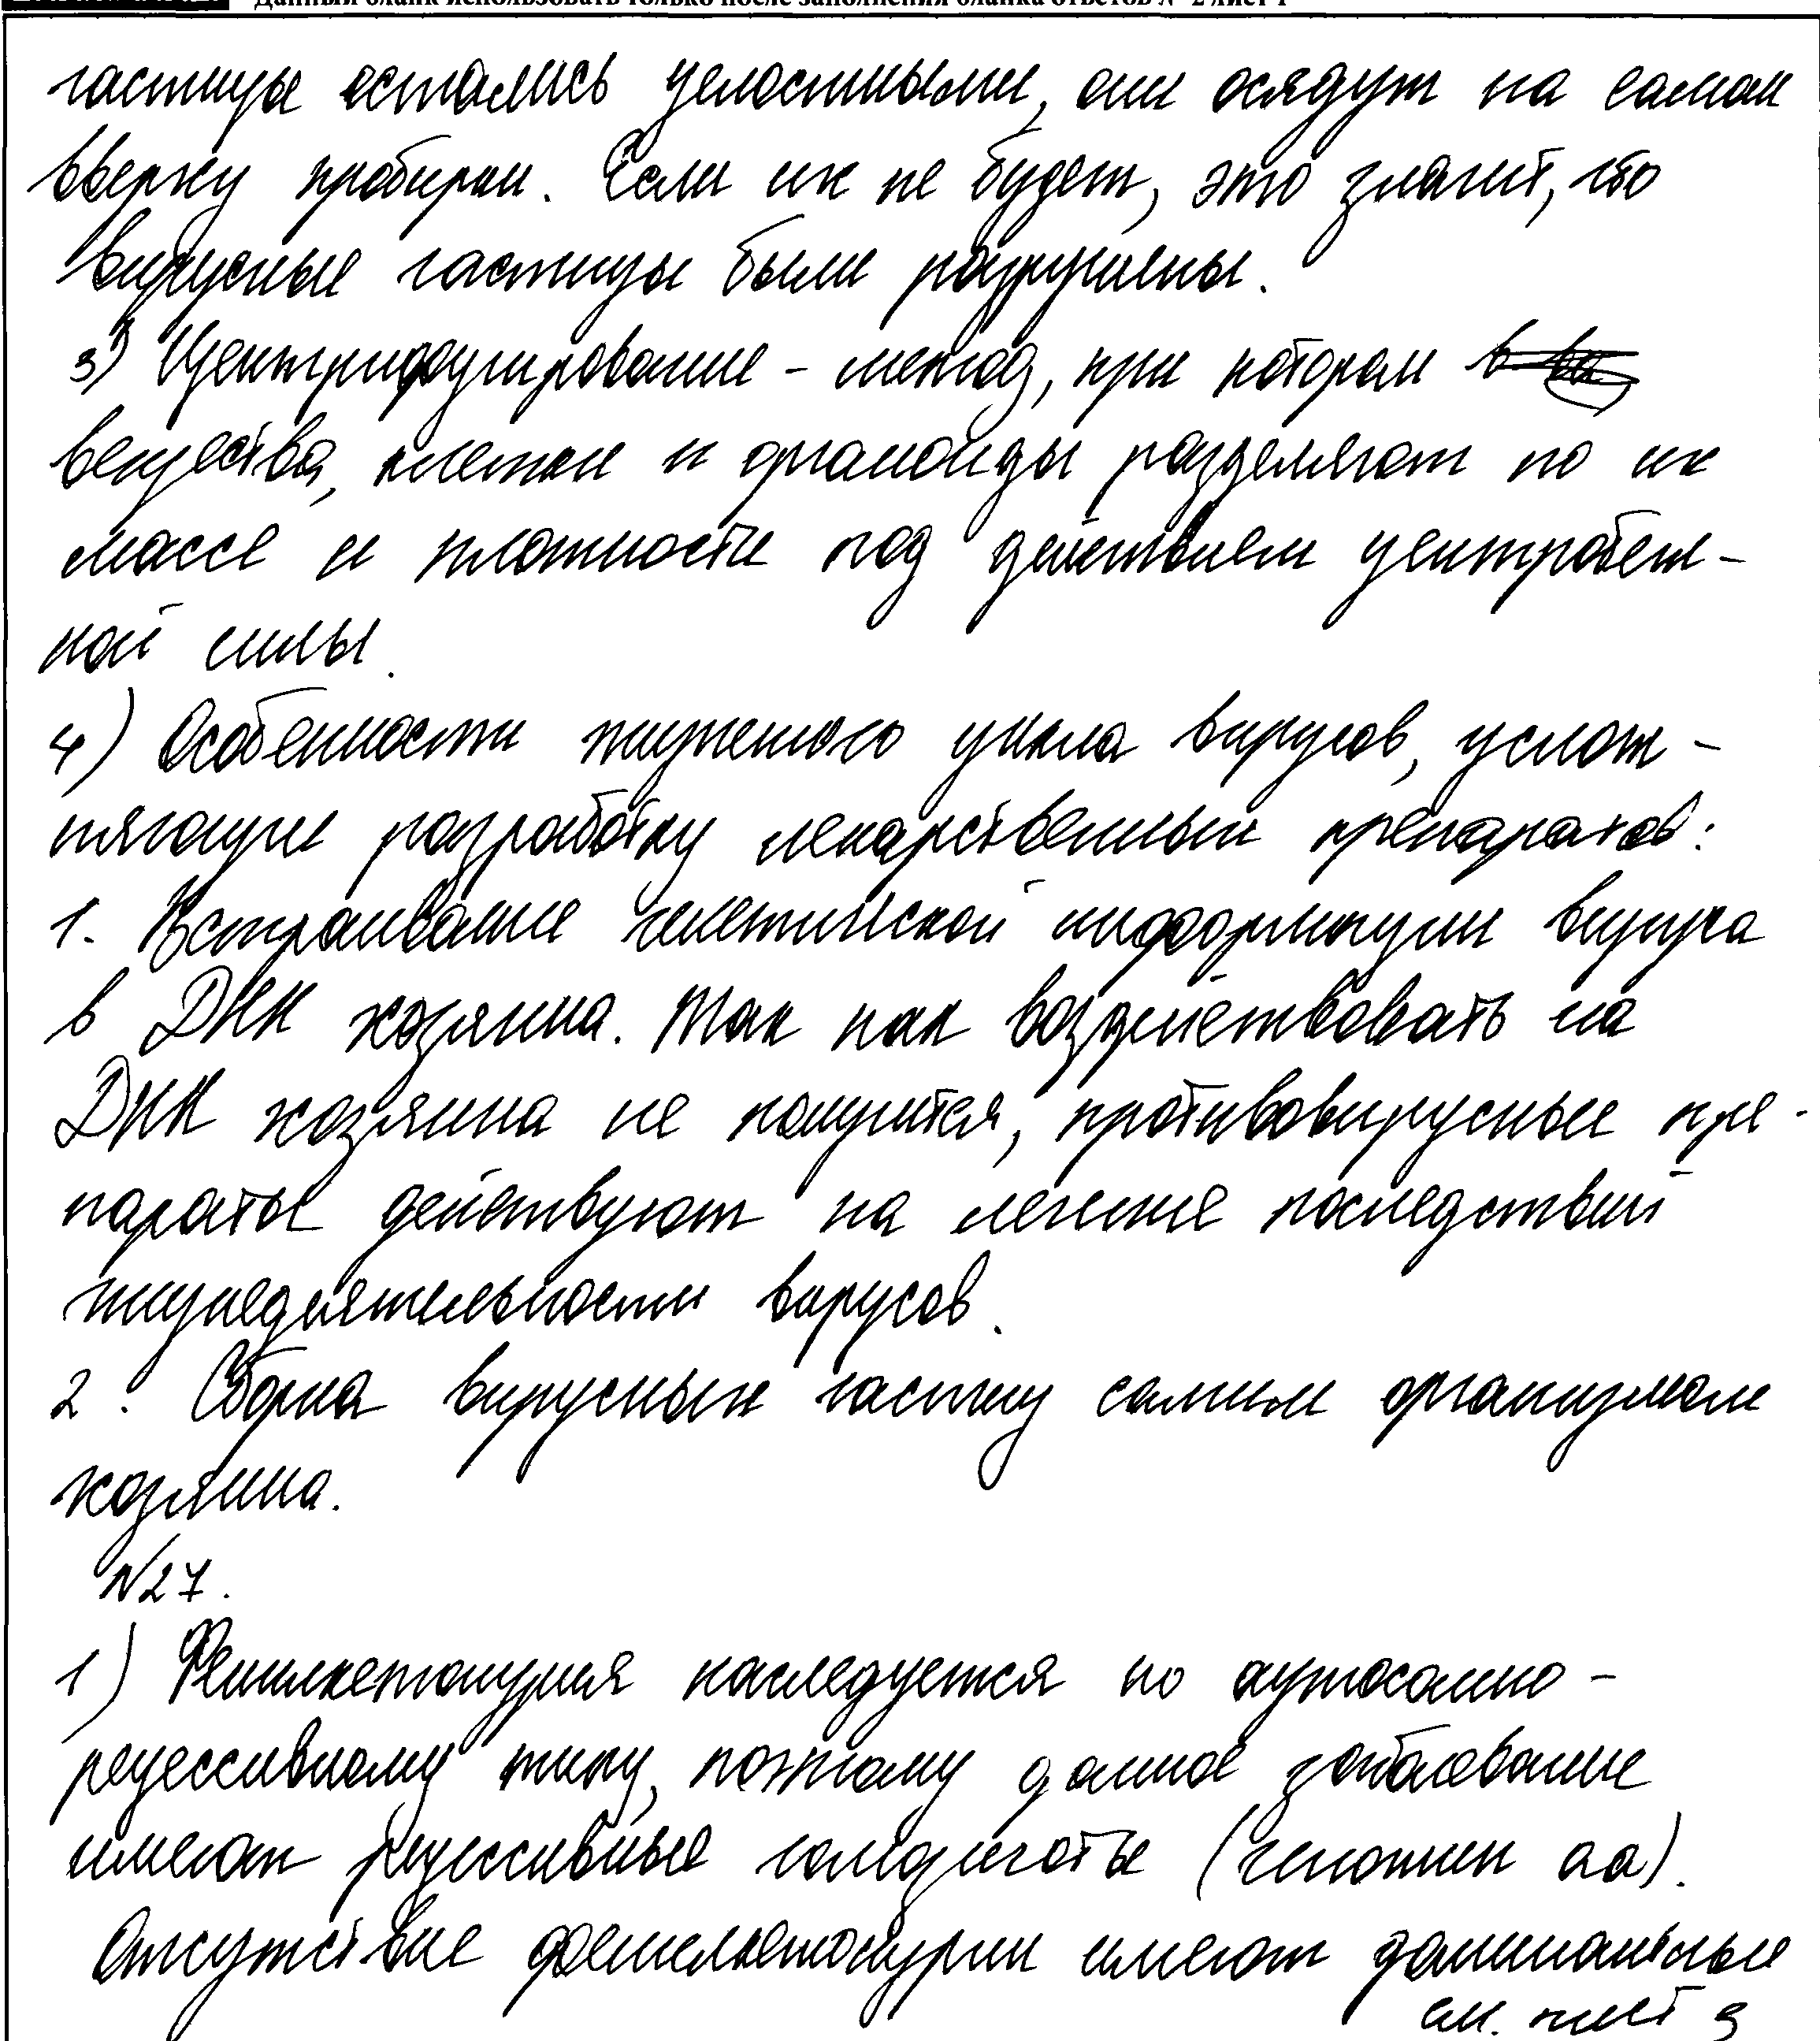 Данный бланк использовать только после заполнения бланка ответов № 2 лист 1
частицы остались целостными, они осядут на самом
вверху пробирки. Если их не будет, это значит, что
вирусные частицы были разрушены.
3) Центрифугирование – метод, при котором
вещества, клетки и органоиды разделяют по их
массе и плотности под действием центробеж-
ной силы.
4) Особенности жизненного цикла вирусов, услож-
няющие разработку лекарственных препаратов:
1. Встраивание генетической информации вируса
в ДНК хозяина. Так как воздействовать на
ДНК хозяина не получится, противовирусные пре-
параты действуют на лечение последствий
жизнедеятельности вирусов.
2. Сборка вирусных частиц самим организмом
хозяина.
№27.
1) Фенилкетонурия наследуется по аутосомно-
рецессивному типу, поэтому данное заболевание
имеют рецессивные гомозиготы (генотип аа).
Отсутствие фенилкетонурии имеют доминантные
см. лист 3